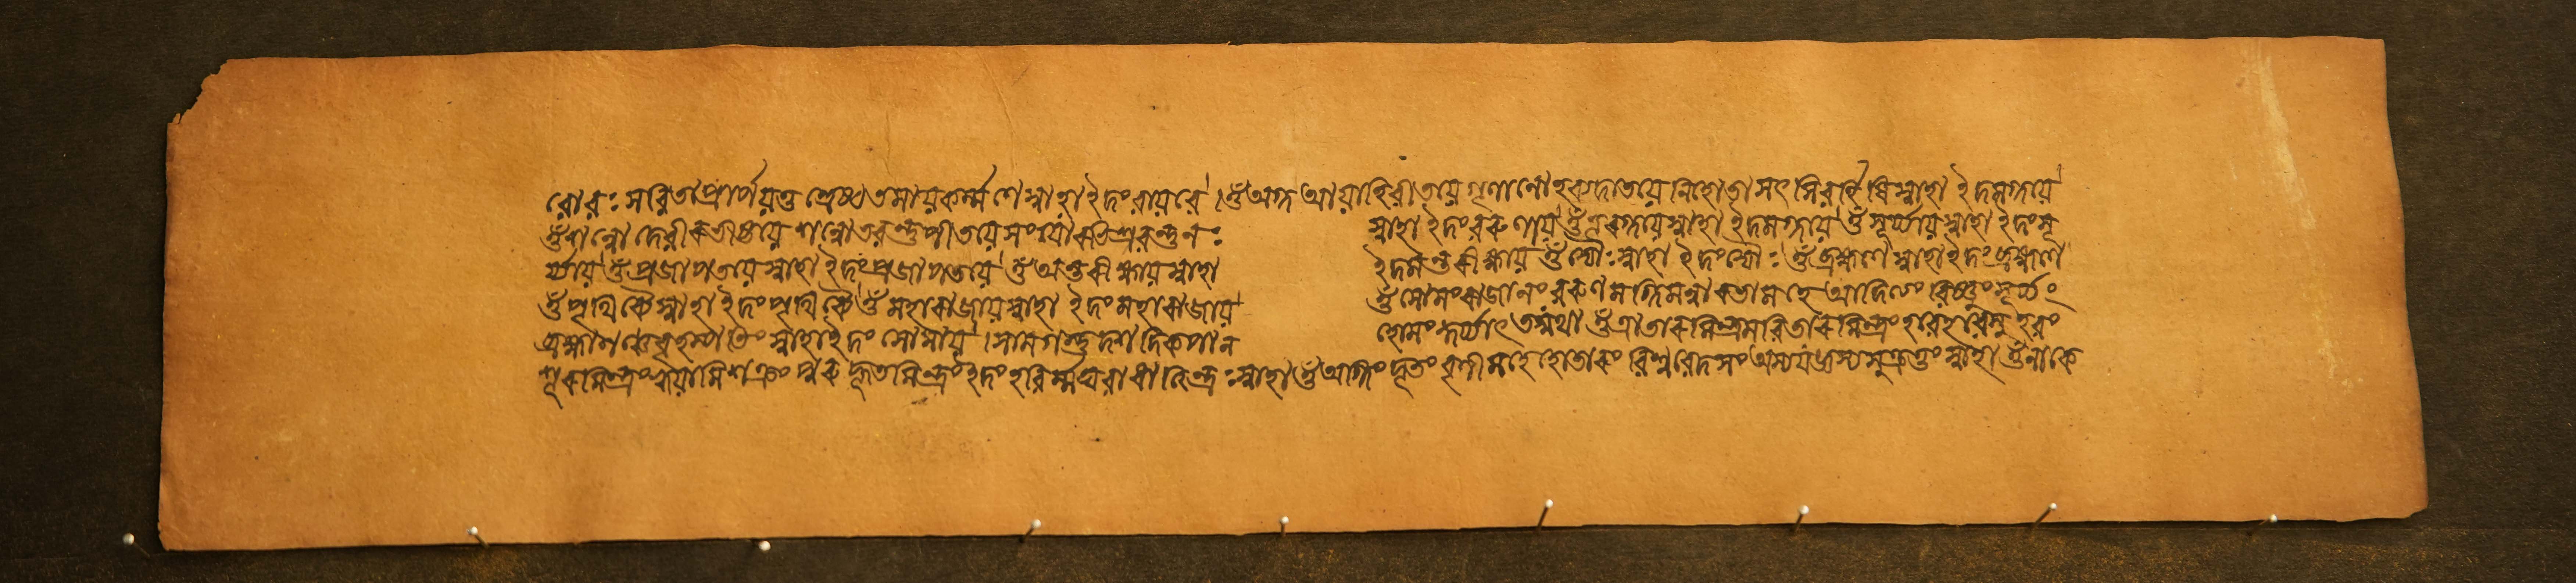 বোবঃ সবিতাপ্রার্পয়তু শ্রেষ্ঠতমায়কর্ম্মণে স্বাহা ইদং বায়বে । ওঁ অগ্ন আয়াহিবীতয়ে গৃণানোহব্যদাতয়ে নিহোতা সৎসিবর্হিষিস্বাহা ইদমগ্নয়ে
ওঁশন্নো দেবীরভীষ্টয়ে শন্নোভবন্তুপীতয়ে সংযোরভিশ্রবন্তুনঃ স্বাহা ইদংবরুণায় ওঁ স্বাহা ইদমগ্নয়ে ওঁ সূর্য্যায় স্বাহা ইদংসূ
র্য্যায় ওঁ প্রজাপতয়ে স্বাহা ইদংপ্রজাপতয়ে ওঁ অন্তরীক্ষায় স্বাহা ইদমন্তরীক্ষায় ওঁ দ্যৌঃ স্বাহা ইদংদ্যৌঃ ওঁ ব্রহ্মণে স্বাহা ইদংব্রহ্মণে
ওঁ পৃথিব্যৈ স্বাহা ইদংপৃথিব্যৈ ওঁ মহারাজায়স্বাহা ইদংমহারাজায় ওঁ সোমংরাজানংবরুণমগ্নিমন্বারভামহে আদিত্যং বিষ্ণুং সূর্য্যং
ব্রহ্মাণঞ্চবৃহস্পতিং স্বাহা ইদং সোমায় । হোমং কুর্য্যাৎ ওঁ ত্রাতারমিন্দ্রমবিতারমিন্দ্রং হবেহবেসু হবং
শূরমিন্দ্রং হ্বয়ামিশক্রং পুরুহূতমিন্দ্রং ইন্দ্রঃ স্বাহা ওঁ অগ্নিং দূতং বৃণীমহে হোতারং বিশ্ববেদসং অস্যযজ্ঞস্যসুক্রতুং স্বাহা ওঁ নাকে